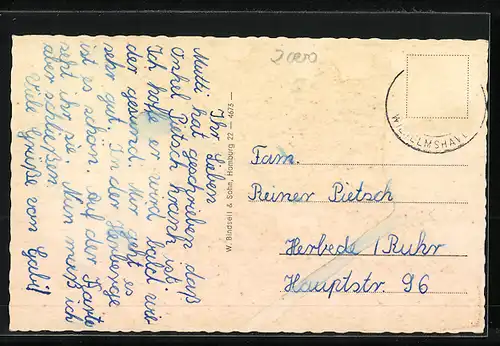 Ihr Lieben
Mutti hat geschrieben daß
Onkel Pietsch krank ist.
Ich hoffe er wird bald wie-
der gesund. Mir geht es
sehr gut. In der Herberge
ist es schön. Auf der Karte
seht ihr sie. Nun muß ich
aber schließen.
Viele Grüße von Gabi!
W. Bindseil & Sohn, Hamburg 22 — 4675 —
WILHELMSHAVEN
Fam.
Reiner Pietsch
Herbede / Ruhr
Hauptstr. 96